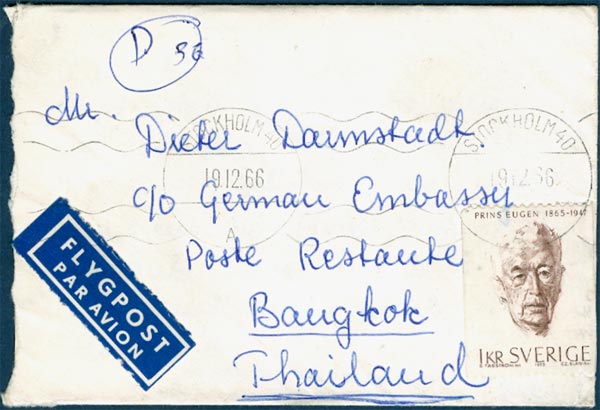 D
Mr. Dieter Darmstadt.
STOCKHOLM 40
19.12.66
A
STOCKHOLM 40
19.12.66
c/o German Embassy
Poste Restante
Bangkok
Thailand
FLYGPOST
PAR AVION
PRINS EUGEN 1865-1947
1 KR SVERIGE